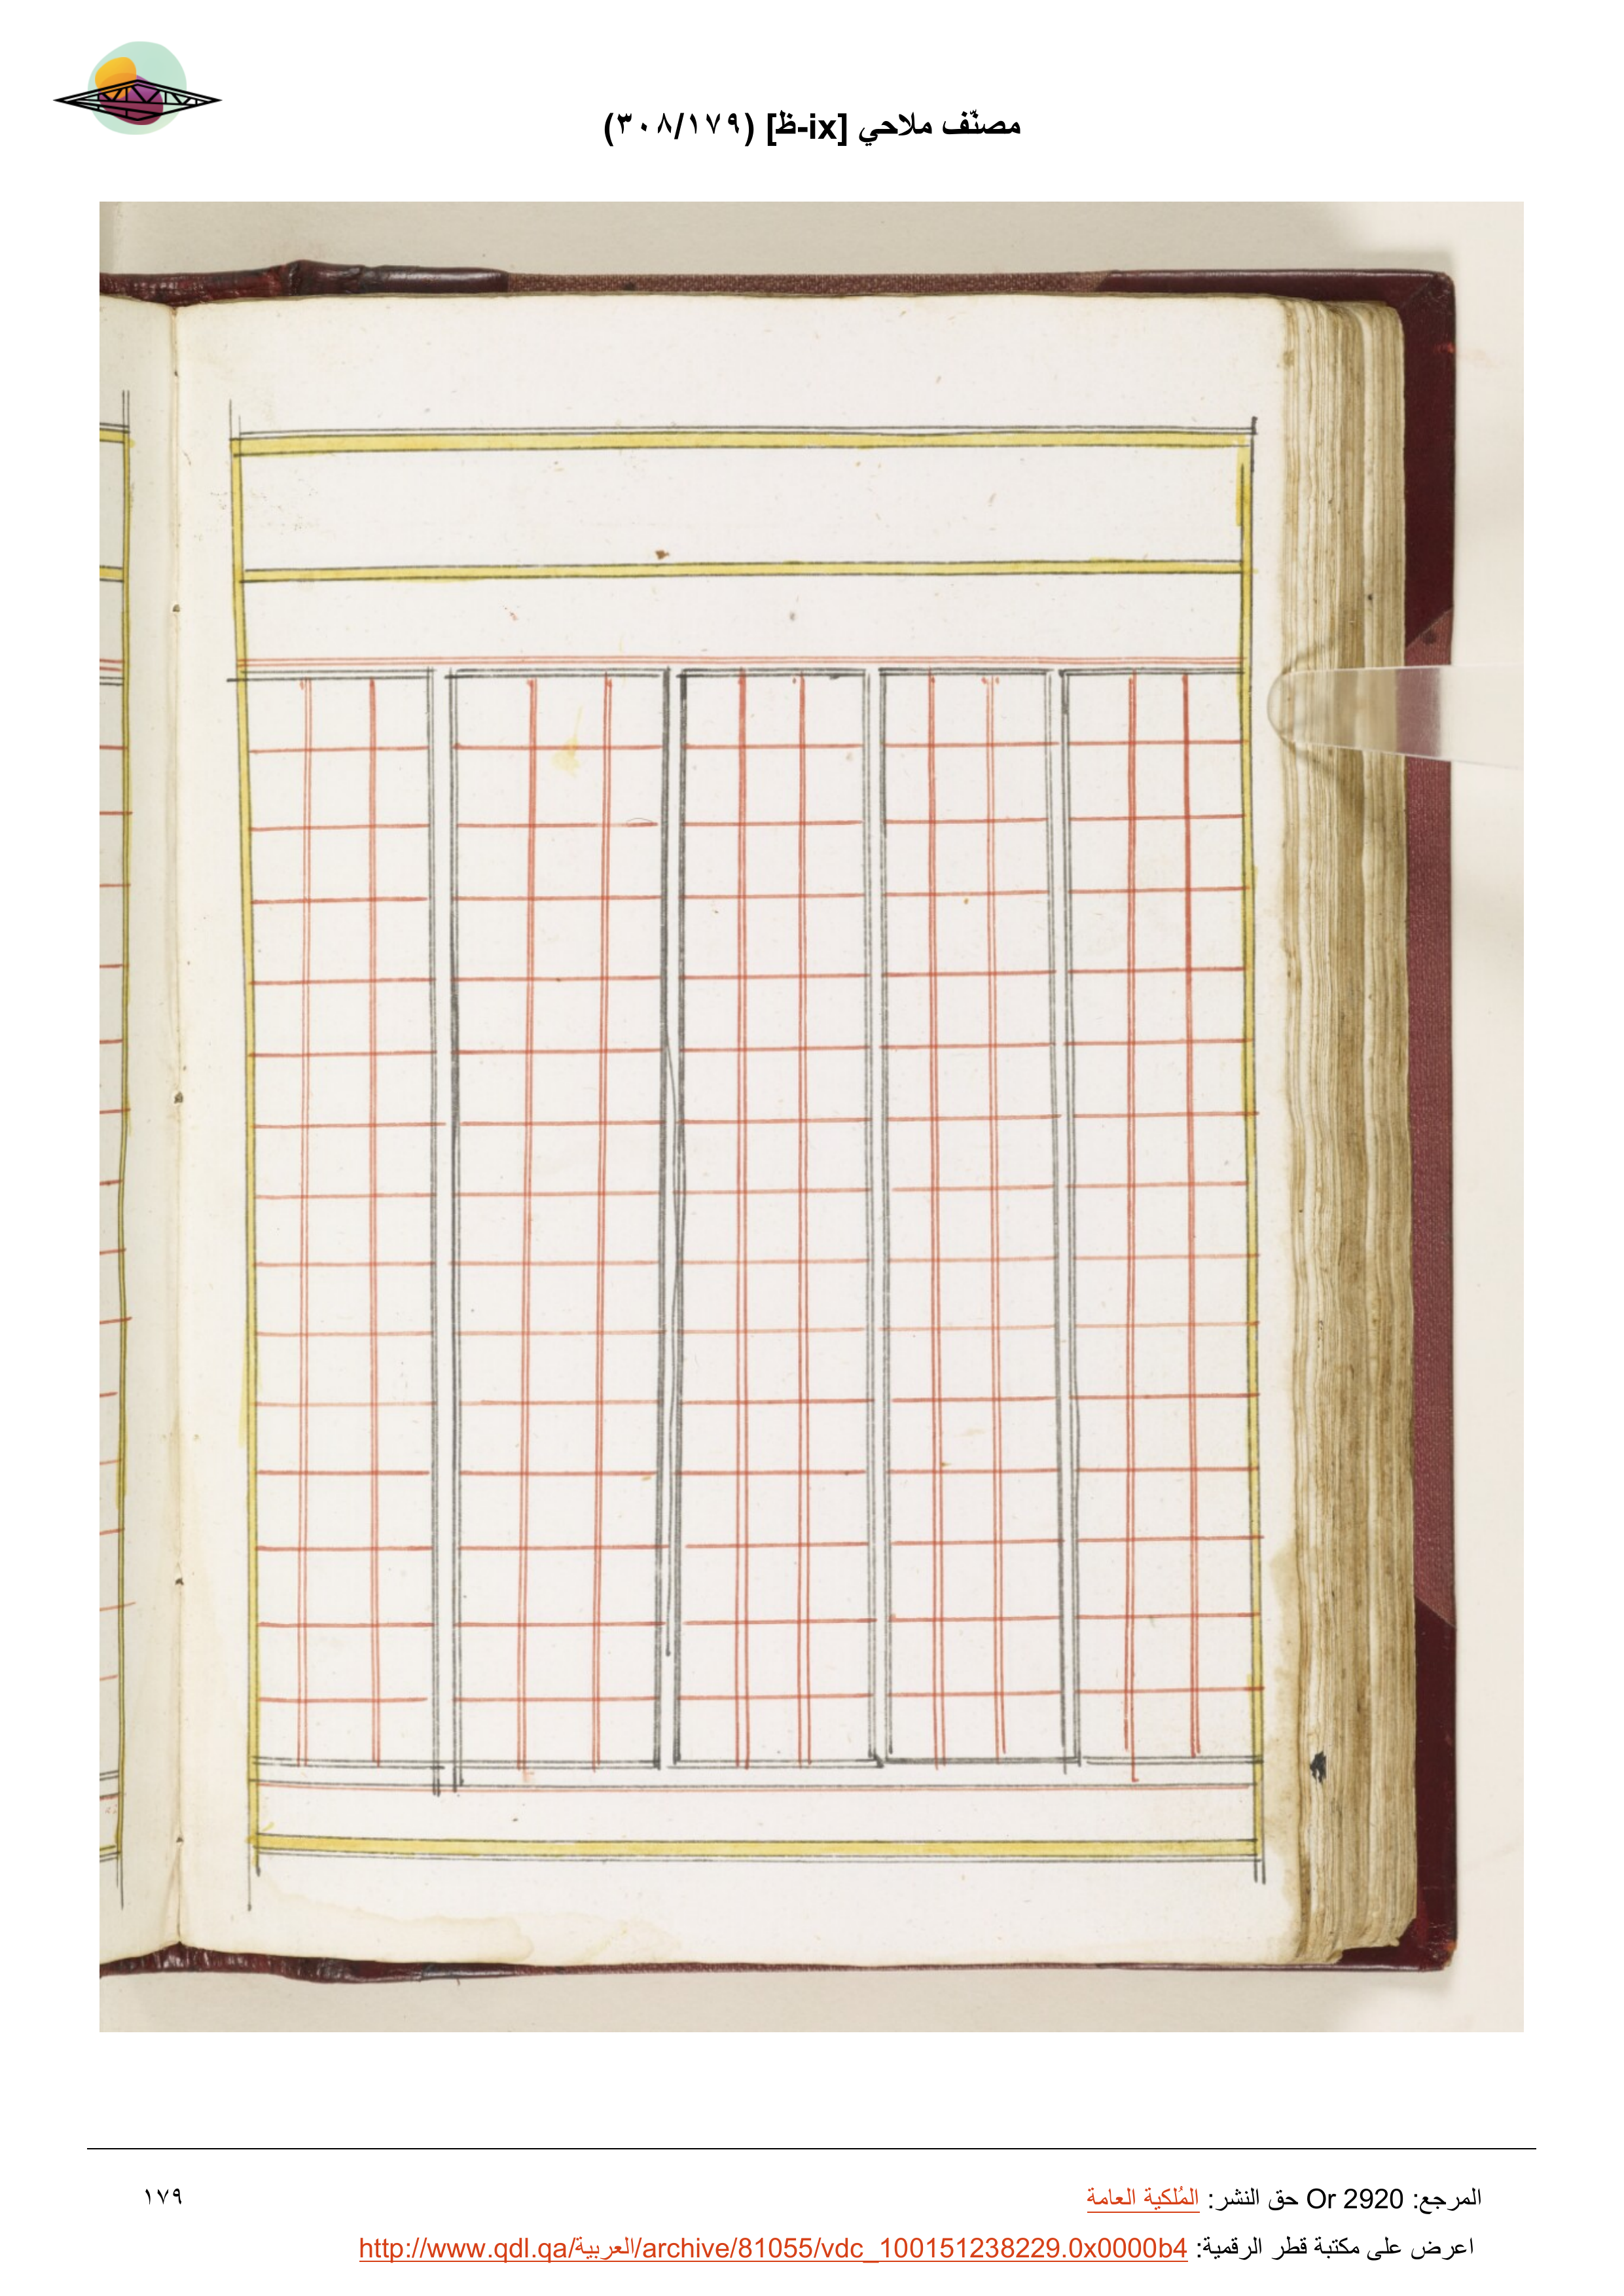 مصنّف ملاحي [ix-ظ] (٣٠٨/١٧٩)
المرجع: Or 2920 حق النشر: المُلكية العامة
١٧٩
اعرض على مكتبة قطر الرقمية: http://www.qdl.qa/العربية/archive/81055/vdc_100151238229.0x0000b4